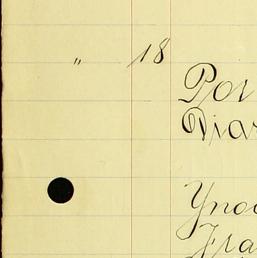 " 18
Por
Diar
Ynoc
Fra